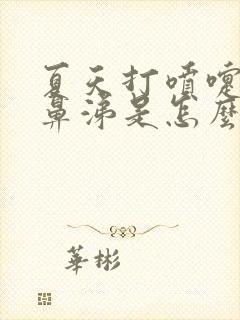 夏天打噴嚏
鼻涕是怎麼
華彬